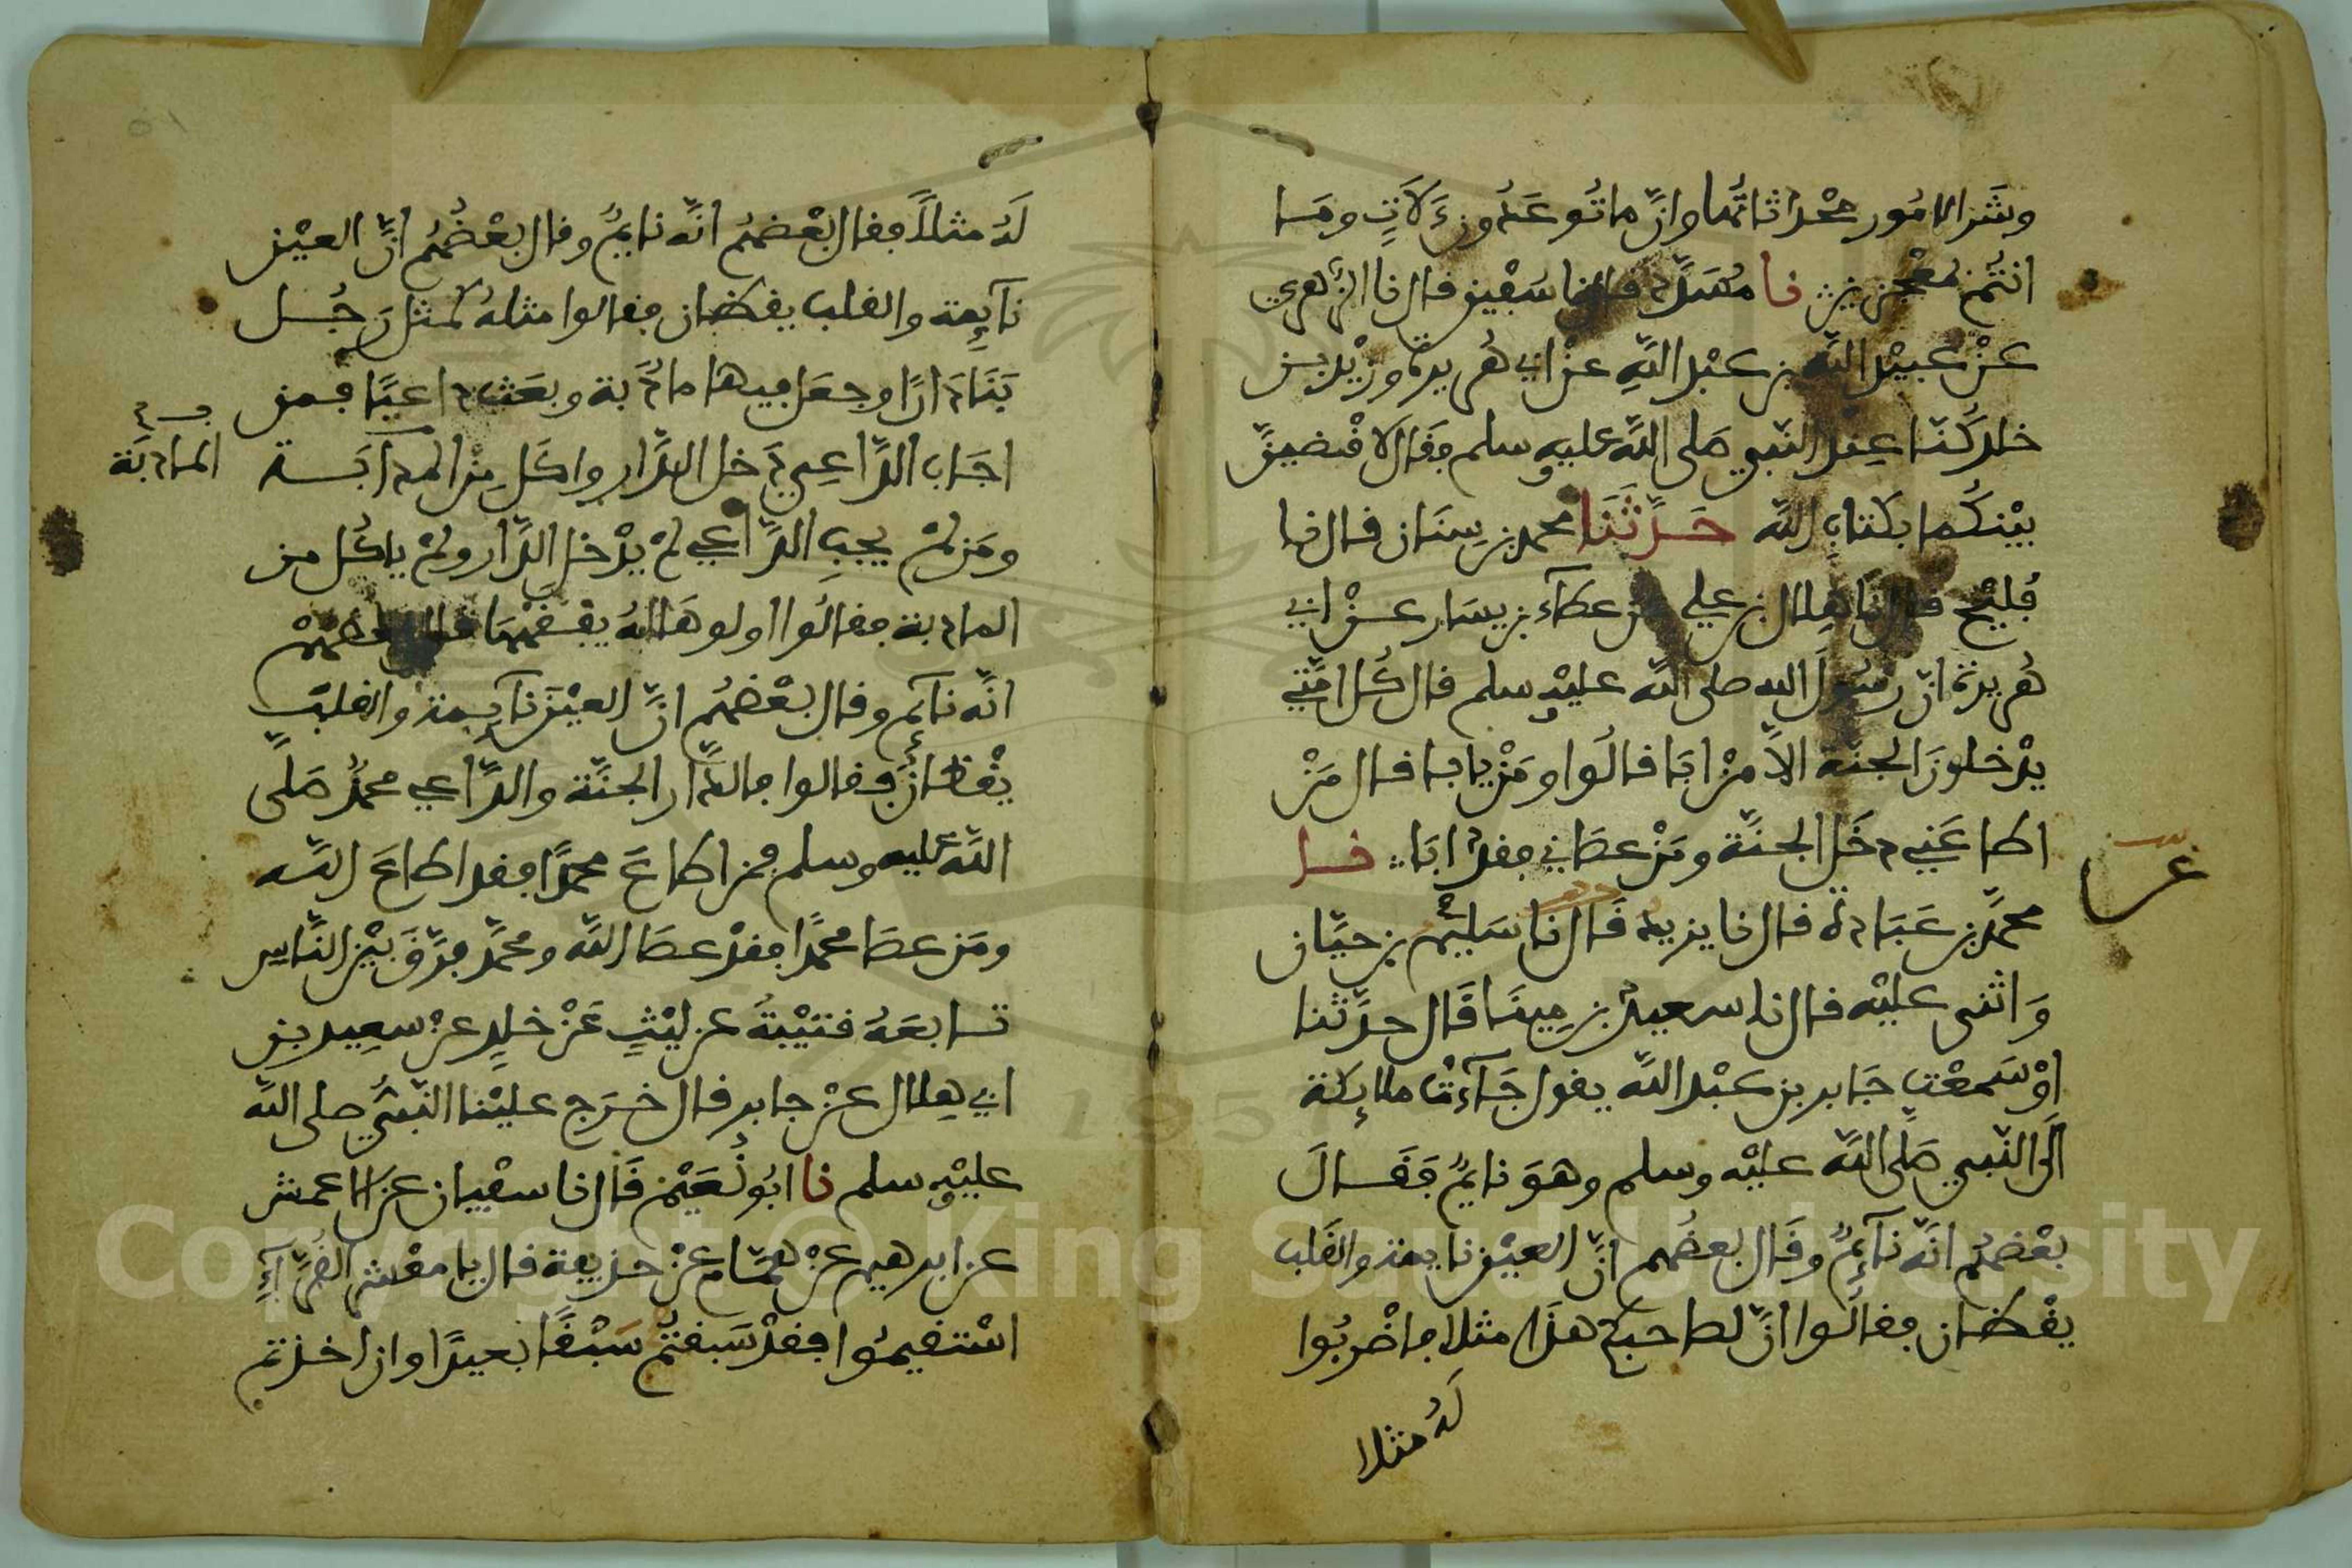 وشر الامور محدثاتها وان ما توعدون لات وما
انتم بمعجزين نا مسدد قال نا سفين قال نا الزهري
عن عبيد الله بن عبد الله عن ابي هريرة وزيد بن
خلد كنا عند النبي صلى الله عليه وسلم فقال لاقضين
بينكما بكتاب الله حدثنا محمد بن سنان قال نا
فليح قال نا هلال بن علي عن عطاء بن يسار عن ابي
هريرة ان رسول الله صلى الله عليه وسلم قال كل امتي
يدخلون الجنة الا من ابا قالوا ومن يابا قال من
اطاعني دخل الجنة ومن عصاني فقد ابا نا
محمد بن عبادة قال نا يزيد قال نا سليم بن حيان
واثنى عليه قال نا سعيد بن مينا قال حدثنا
او سمعت جابر بن عبد الله يقول جاءت ملايكة
الى النبي صلى الله عليه وسلم وهو نايم فقال
بعضهم انه نائم وقال بعضهم ان العين نايمة والقلب
يقظان فقالوا ان لصاحبكم هذا مثلا فاضربوا
له مثلا
له مثلا فقال بعضهم انه نايم وقال بعضهم ان العين
نآيمة والقلب يقظان فقالوا مثله كمثل رجل
بنا دارا وجعل فيها مادبة وبعث داعيا فمن
اجاب الداعي دخل الدار واكل من
المادبة
ومن لم يجب الداعي لم يدخل الدار ولم ياكل من
المادبة فقالوا اولوها له يفقهها فقال بعضهم
انه نآئم وقال بعضهم ان العين نآيمة والقلب
يقظان فقالوا فالدار الجنة والداعي محمد صلى
الله عليه وسلم فمن اطاع محمدا فقد اطاع الله
ومن عصا محمدا فقد عصا الله ومحمد فرق بين الناس
تابعه قتيبة عن ليث عن خلد عن سعيد بن
ابي هلال عن جابر قال خرج علينا النبي صلى الله
عليه وسلم نا ابو نعيم قال نا سفيان عن الاعمش
عن ابرهيم عن همام عن حذيفة قال يا معشر القرآء
استقيموا فقد سبقتم سبقا بعيدا وان اخذتم